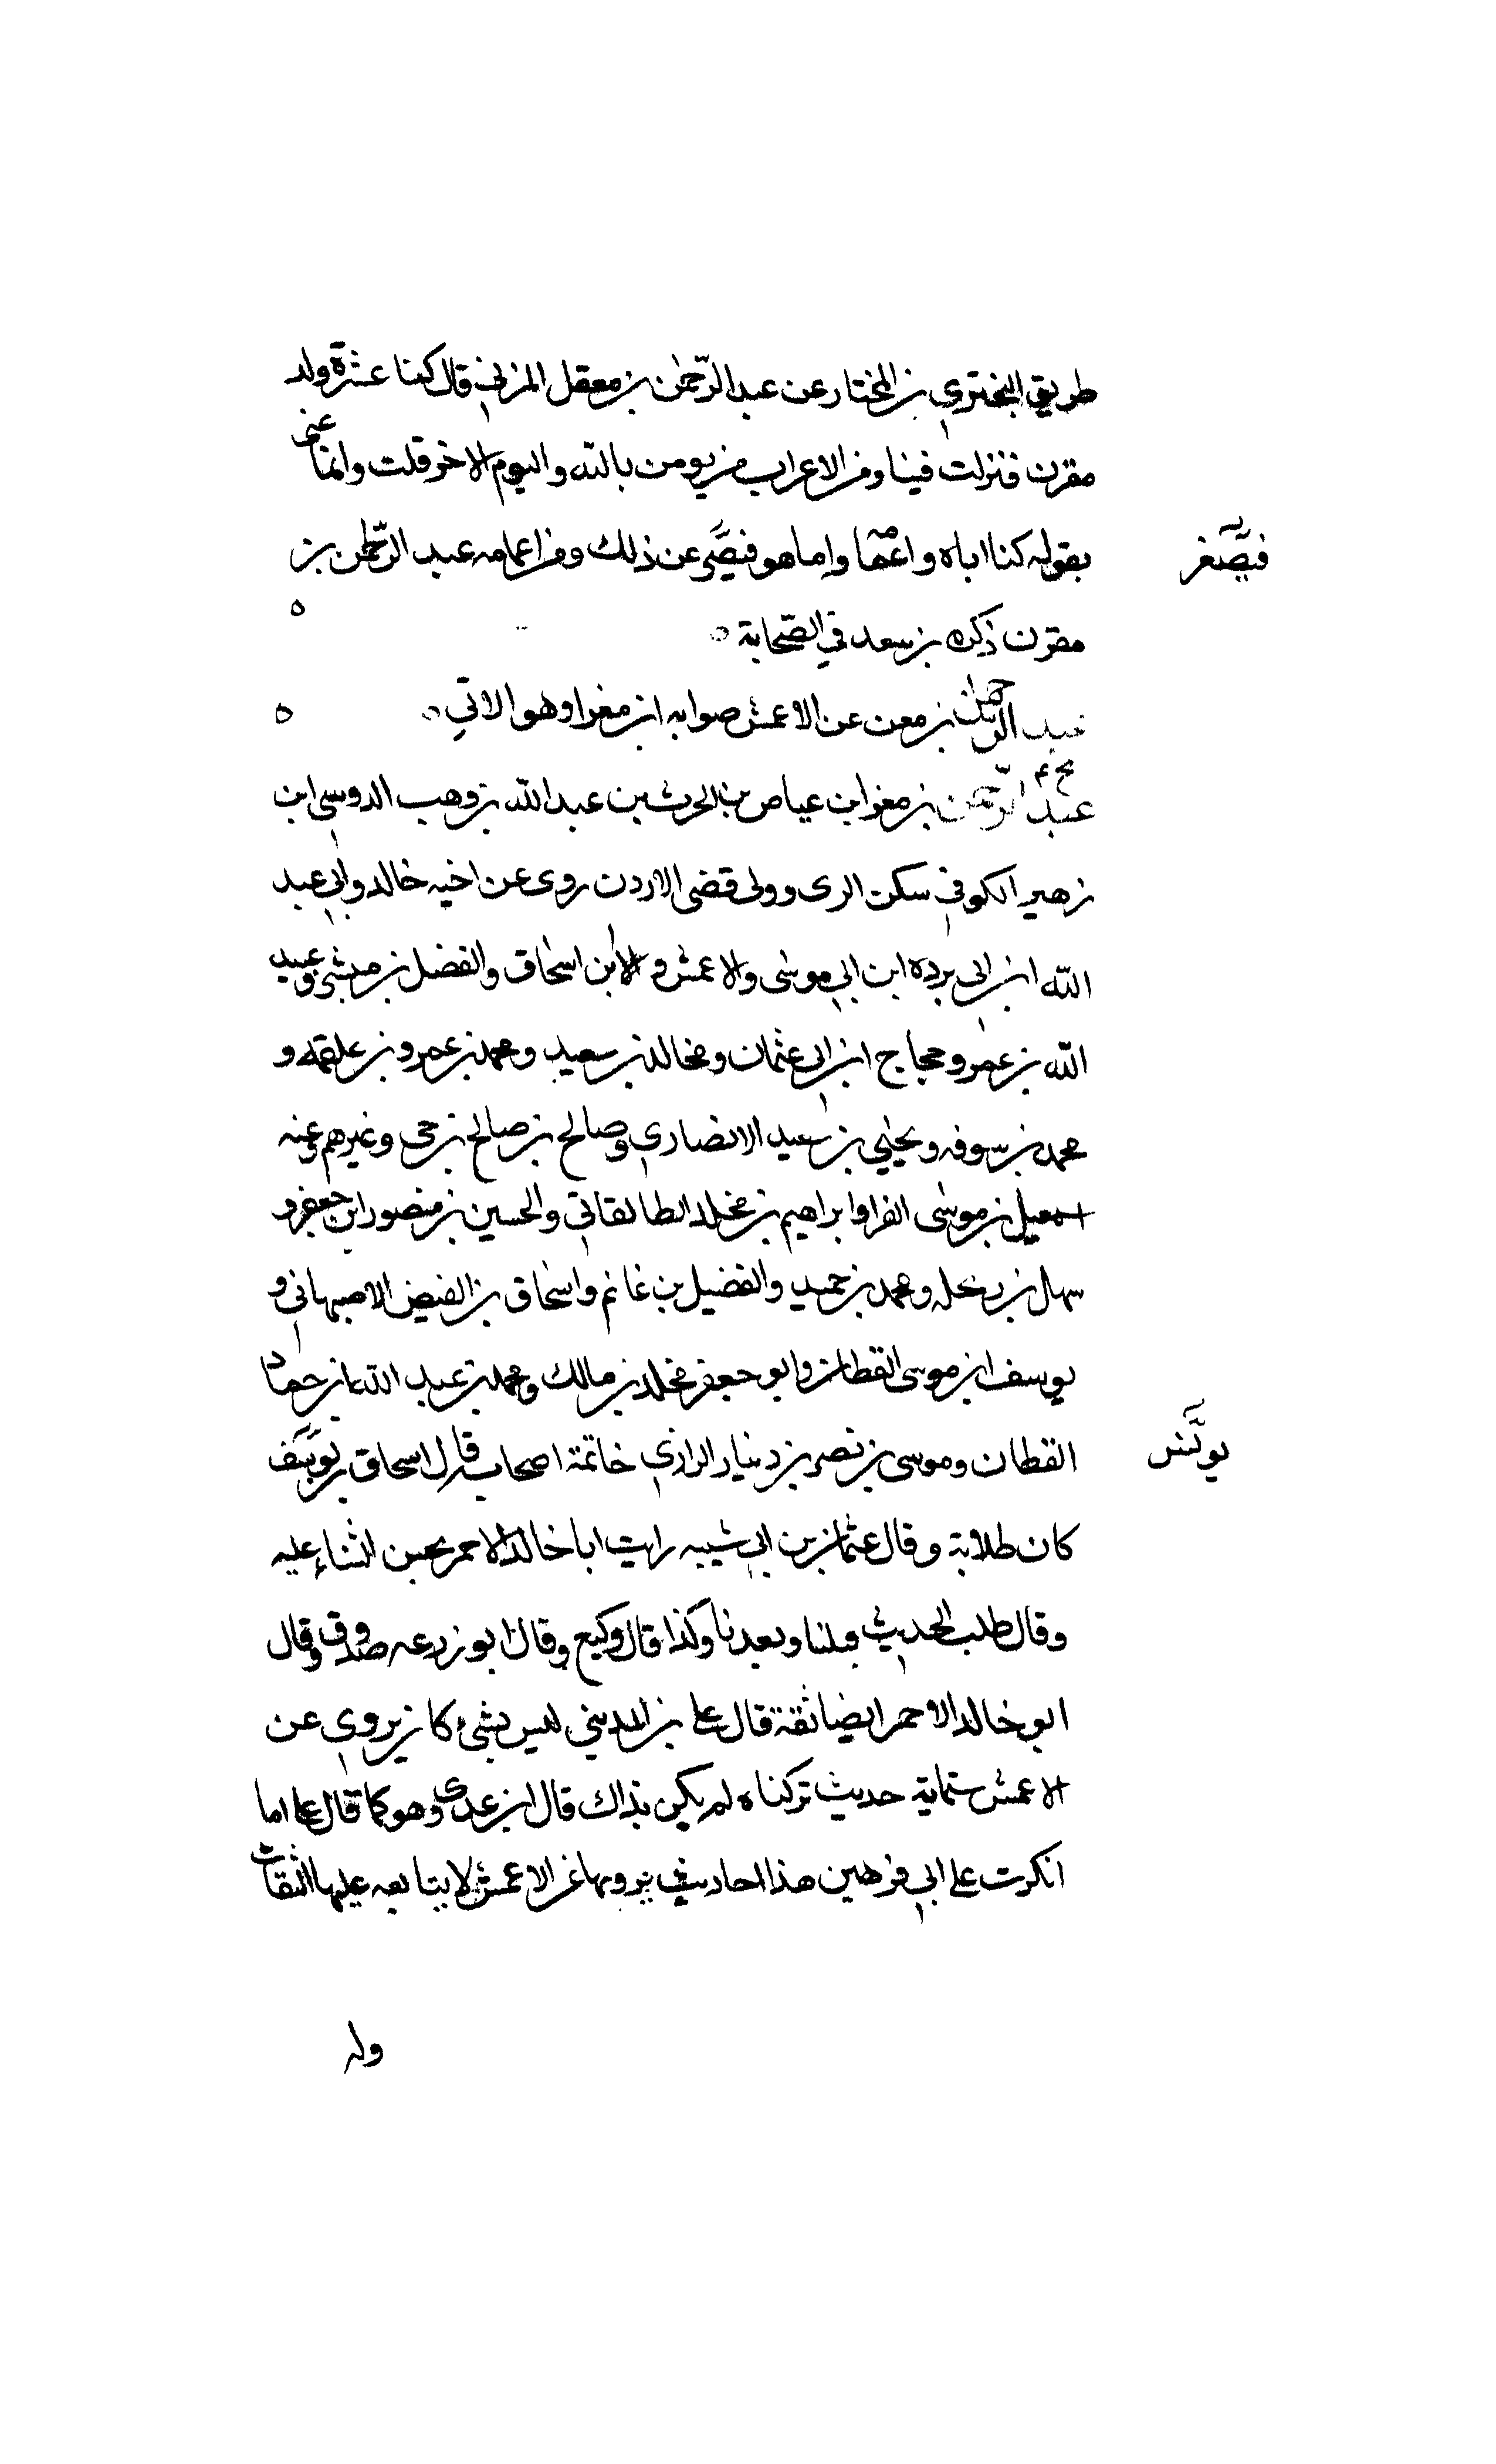 طريق البختري بن المختار عن عبد الرحمٰن بن معقل المزني قال كنا عشرة ولد
مقرن فنزلت فينا ومن الاعراب من يومن بالله واليوم الاخر قلت وانما عنى
بقوله كنا اباه واعمامه واما هو فيصغر عن ذلك ومن اعمامه عبد الرحمٰن بن
فيصغر
مقرن ذكره بن سعد في الصحابة ه
عبد الرحمٰن بن معن عن الاعمش صوابه ابن مغرا وهو الاتي ه
بخ عم
عبد الرحمن بن مغرا بن عياض بن الحرث بن عبد الله بن وهب الدوسي ابن
زهير الكوفي سكن الرى وولى قضى الاردن روى عن اخيه خالد وابي عبد
الله ابن ابي برده ابن ابي موسى والاعمش و الابن اسحاق والفضل بن مبشر وعبيد
الله بن عمرو حجاج ابن ابي عثمان ومخالد بن سعيد ومحمد بن عمرو بن علقمه و
محمد بن سوقه ويحيي بن سعيد الانصاري وصالح بن صالح بن حى وغيرهم وعنه
اسمعيل بن موسى الفرا وابراهيم بن مخلد الطالقاني والحسين بن منصور ابن جعفر و
سهل بن زنجله ومحمد بن حميد والفضيل بن غانم واسحاق بن الفيض الاصبهاني و
يوسف ابن موسى القطان وابو جعفر مخلد بن مالك ومحمد بن عبد الله ابن حماد
القطان وموسى بن نصر بن دينار الرازي خاتمة اصحابه قال اسحاق بن يوسف
يونس
كان طلابة وقال عثمان بن ابي شيبه رايت ابا خالد الاحمر يحسن الثناء عليه
وقال طلب الحديث قبلنا وبعدنا وكذا قال وكيع وقال ابو زرعه صدوق وقال
ابو خالد الاحمر ايضا ثقة قال على بن المديني ليس بشيء كان يروي عن
الاعمش ستماية حديث تركناه لم يكن بذاك قال ابن عدى وهو كما قال على اما
انكرت على ابي زهير هذا احاديث يرويها عن الاعمش لا يتابعه عليها الثقات
وله